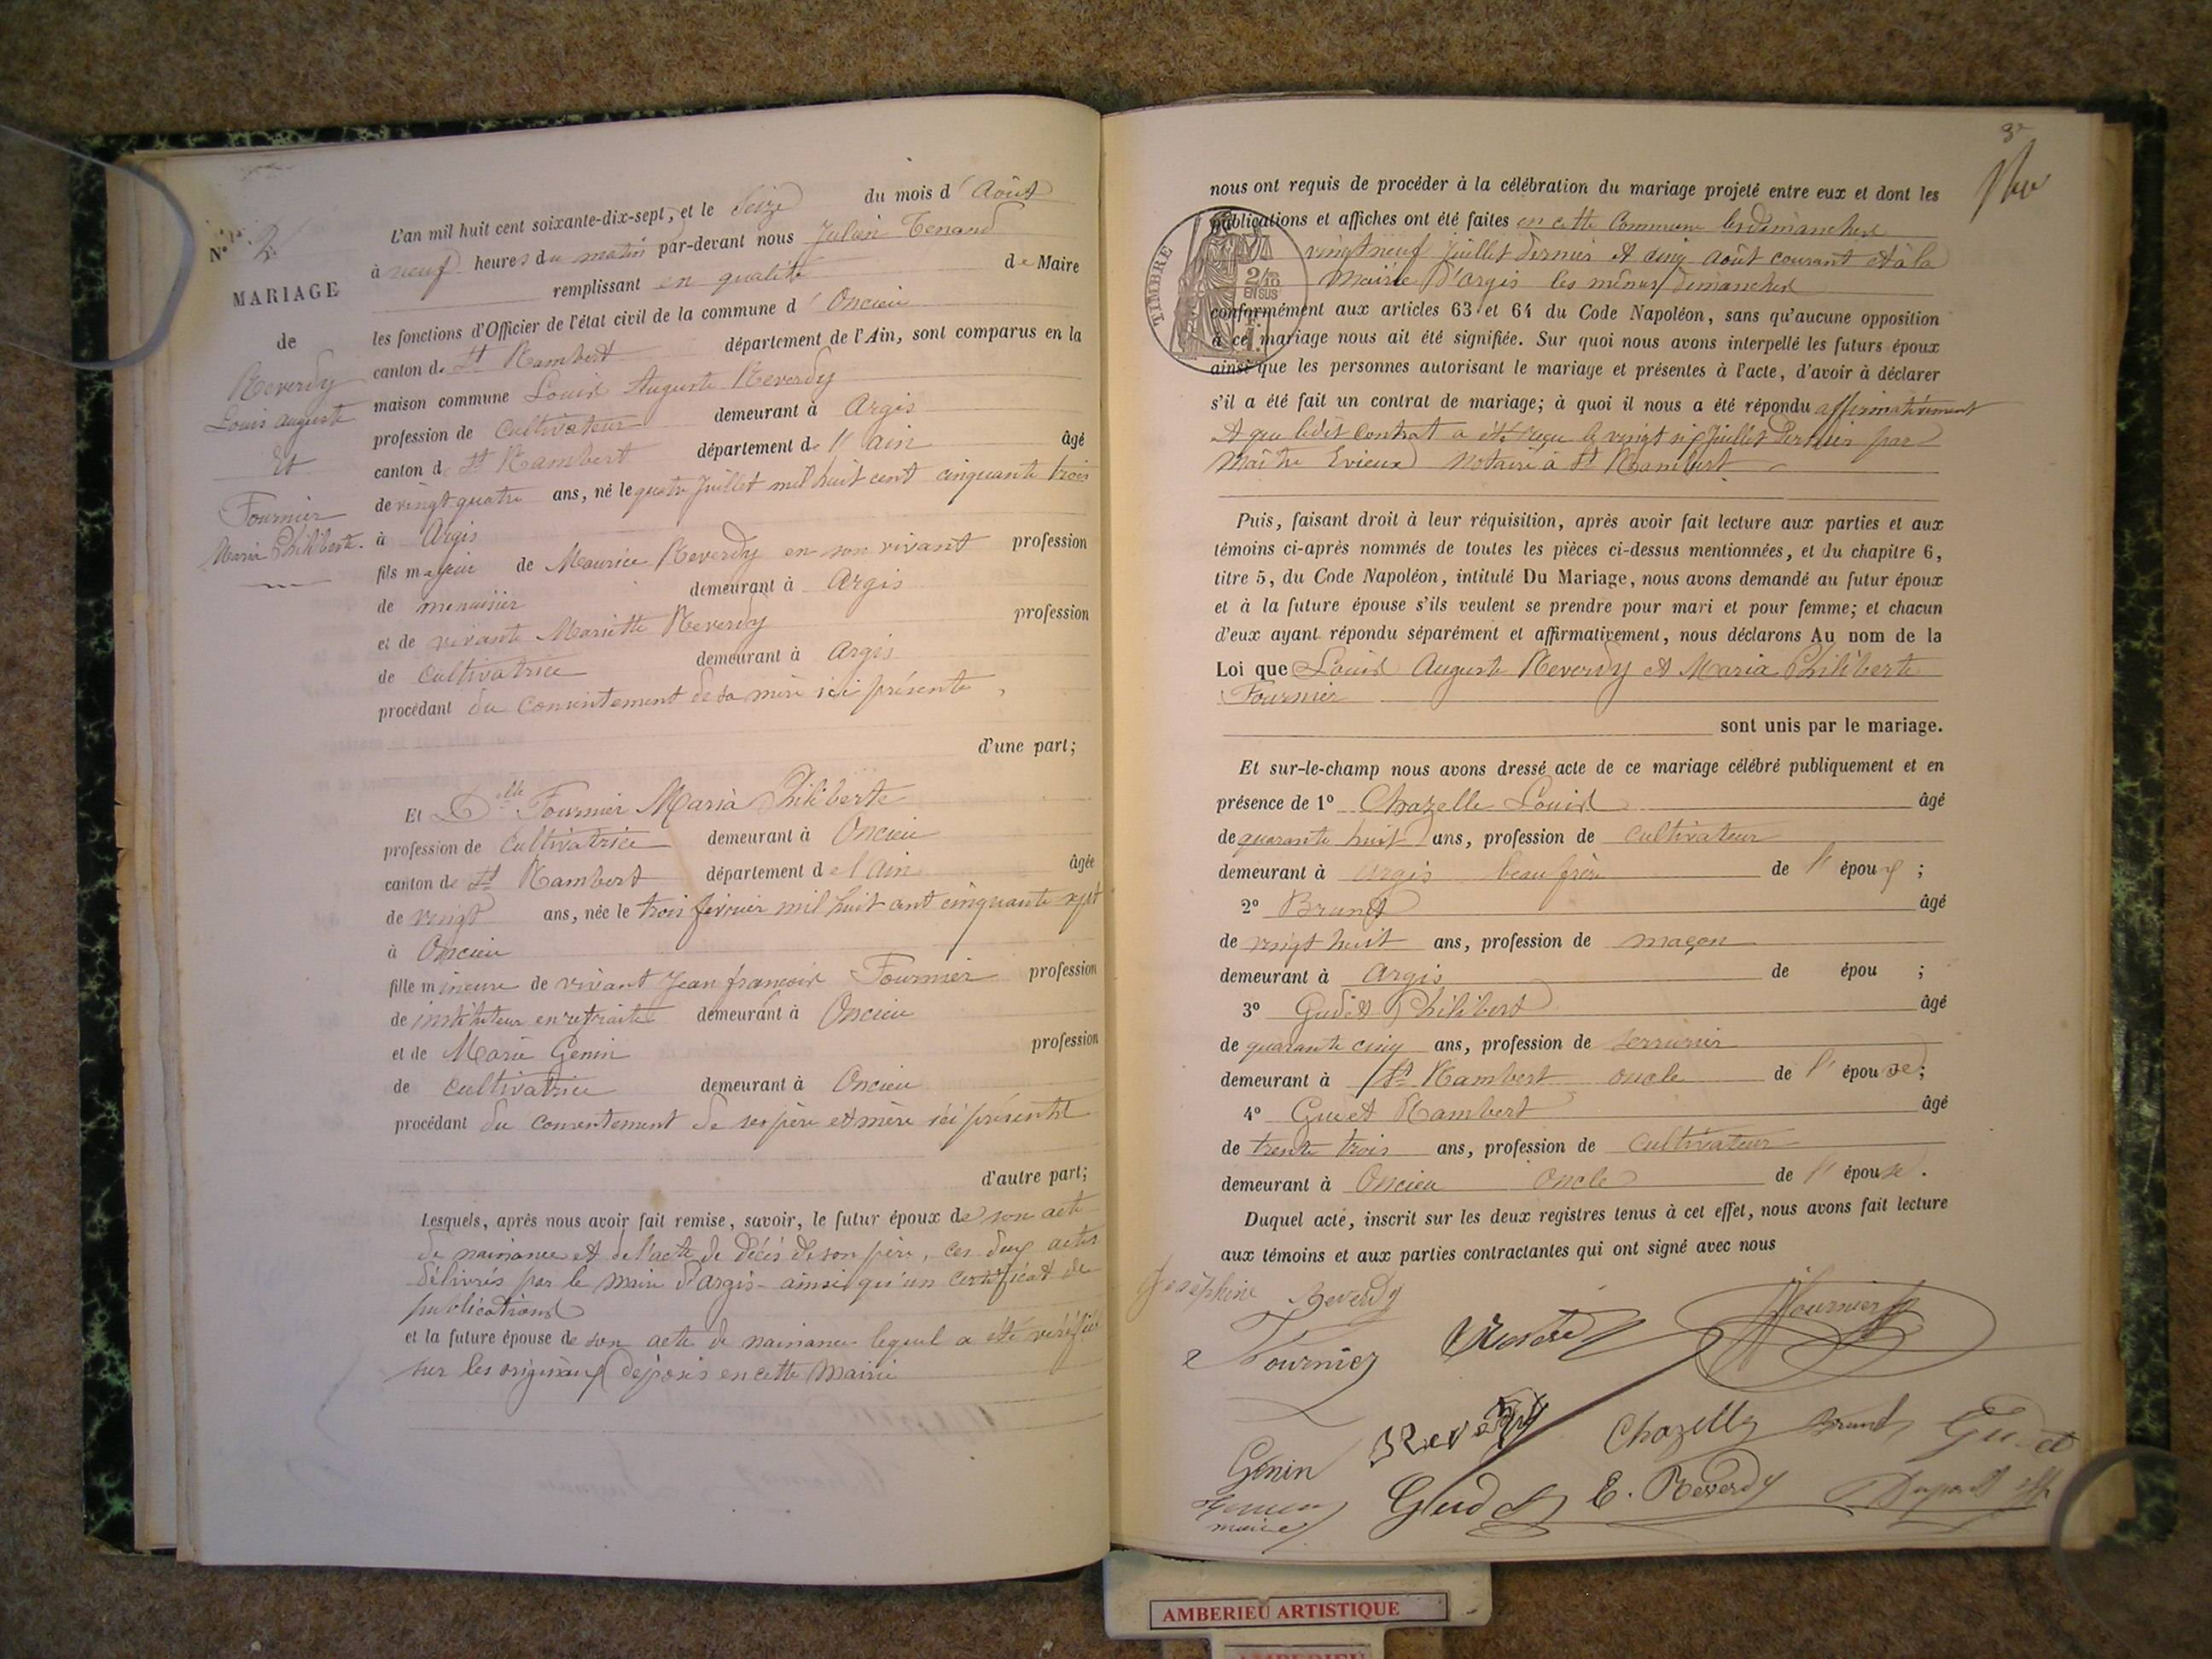 N° 2
MARIAGE
de
Reverdy
Louis auguste
Et
Fournier
Maria Philiberte.
L'an mil huit cent soixante-dix-sept, et le Seize du mois d'Août
à neuf heures du matin par-devant nous Julien Tenand
remplissant en qualité de Maire
les fonctions d'Officier de l'état civil de la commune d'Oncieu
canton de St Rambert département de l'Ain, sont comparus en la
maison commune Louis Auguste Reverdy
profession de Cultivateur demeurant à Argis
canton de St Rambert département de l'ain âgé
de vingt quatre ans, né le quatre Juillet mil huit cent cinquante trois
à Argis
fils majeur de Maurice Reverdy en son vivant profession
de menuisier demeurant à Argis
et de vivante Mariette Reverdy profession
de Cultivatrice demeurant à Argis
procédant du consentement de sa mère ici présente,
d'une part;
Et Delle Fournier Maria Philiberte
profession de Cultivatrice demeurant à Oncieu
canton de St Rambert département de l'ain âgée
de vingt ans, née le trois février mil huit cent cinquante sept
à Oncieu
fille mineure de vivant Jean françois Fournier profession
de instituteur en retraite demeurant à Oncieu
et de Marie Genin profession
de Cultivatrice demeurant à Oncieu
procédant du consentement de ses père et mère ici présents
d'autre part;
Lesquels, après nous avoir fait remise, savoir, le futur époux de son acte
de naissance et de l'acte de décès de son père, ces deux actes
délivrés par le maire d'argis ainsi qu'un certificat de
publications
et la future épouse de son acte de naissance lequel a été vérifié
sur les originaux déposés en cette Mairie
nous ont requis de procéder à la célébration du mariage projeté entre eux et dont les
publications et affiches ont été faites en cette Commune les dimanches
vingt neuf Juillet dernier et cinq août courant et à la
Mairie d'argis les mêmes dimanches
TIMBRE
2/10
EN SUS
conformément aux articles 63 et 64 du Code Napoléon, sans qu'aucune opposition
à ce mariage nous ait été signifiée. Sur quoi nous avons interpellé les futurs époux
ainsi que les personnes autorisant le mariage et présentes à l'acte, d'avoir à déclarer
s'il a été fait un contrat de mariage; à quoi il nous a été répondu affirmativement
et que ledit Contrat a été reçu le vingt six Juillet dernier par
Maître Evieux Notaire à St Rambert
Puis, faisant droit à leur réquisition, après avoir fait lecture aux parties et aux
témoins ci-après nommés de toutes les pièces ci-dessus mentionnées, et du chapitre 6,
titre 5, du Code Napoléon, intitulé Du Mariage, nous avons demandé au futur époux
et à la future épouse s'ils veulent se prendre pour mari et pour femme; et chacun
d'eux ayant répondu séparément et affirmativement, nous déclarons Au nom de la
Loi que Louis Auguste Reverdy et Maria Philiberte
Fournier
sont unis par le mariage.
Et sur-le-champ nous avons dressé acte de ce mariage célébré publiquement et en
présence de 1° Chazelle Louis âgé
de quarante huit ans, profession de cultivateur
demeurant à Argis beau frère de l'époux ;
2° Brunet âgé
de vingt huit ans, profession de maçon
demeurant à Argis de épou ;
3° Gudet Philibert âgé
de quarante cinq ans, profession de serrurier
demeurant à St Rambert oncle de l'épouse;
4° Gudet Rambert âgé
de trente trois ans, profession de Cultivateur
demeurant à Oncieu Oncle de l'épouse.
Duquel acte, inscrit sur les deux registres tenus à cet effet, nous avons fait lecture
aux témoins et aux parties contractantes qui ont signé avec nous
Josephine Reverdy
Fournier
Fournier
Reverdy
Chazelle
Brunet
Gudet
Génin
Gudet
E. Reverdy
maire
AMBERIEU ARTISTIQUE
AMBERIEU